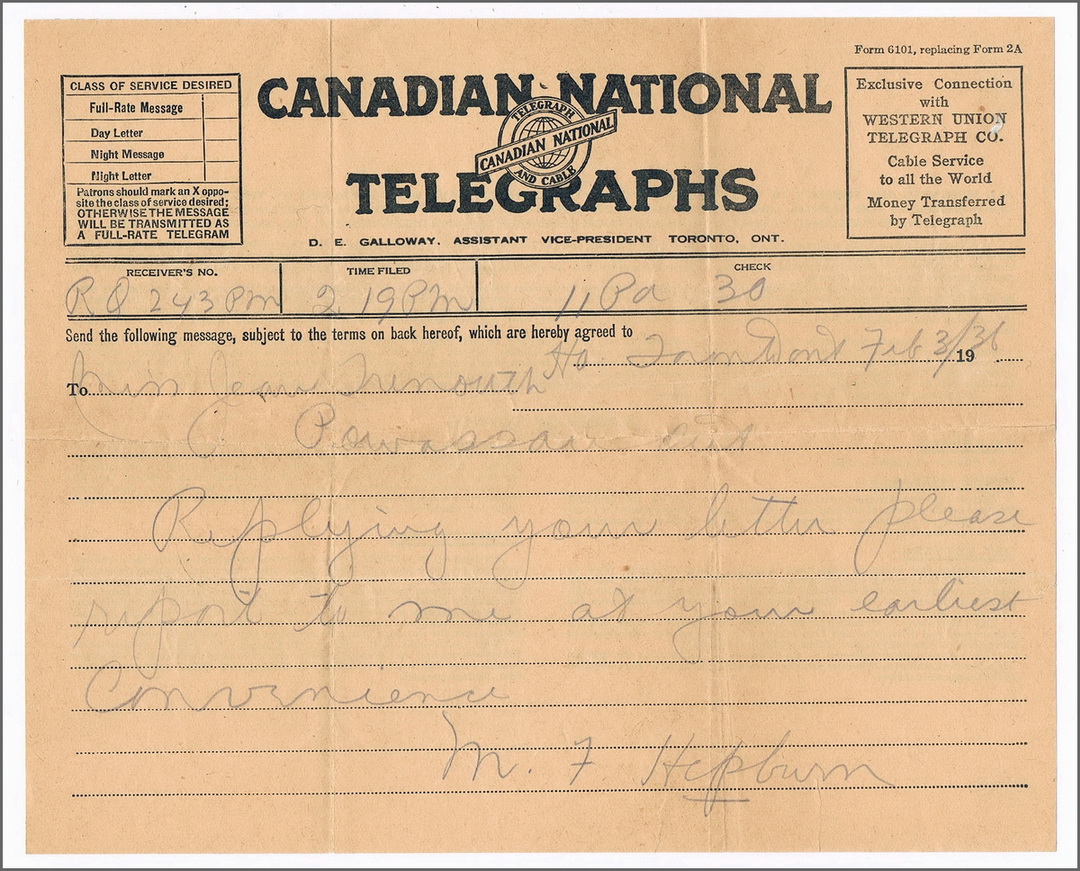 Form 6101, replacing Form 2A
CLASS OF SERVICE DESIRED
Full-Rate Message
Day Letter
Night Message
Night Letter
Patrons should mark an X oppo-
site the class of service desired;
OTHERWISE THE MESSAGE
WILL BE TRANSMITTED AS
A FULL-RATE TELEGRAM
CANADIAN NATIONAL
TELEGRAPH
CANADIAN NATIONAL
AND CABLE
TELEGRAPHS
D. E. GALLOWAY. ASSISTANT VICE-PRESIDENT TORONTO, ONT.
Exclusive Connection
with
WESTERN UNION
TELEGRAPH CO.
Cable Service
to all the World
Money Transferred
by Telegraph
RECEIVER'S NO.
TIME FILED
CHECK
RQ 243 PM
2 19 PM
11 Pd 30
Send the following message, subject to the terms on back hereof, which are hereby agreed to
Toronto Ont Feb 3/36
19
To Miss Jean Trenouth
Powassan Ont
Replying your letter please
report to me at your earliest
Convenience
M. F Hepburn